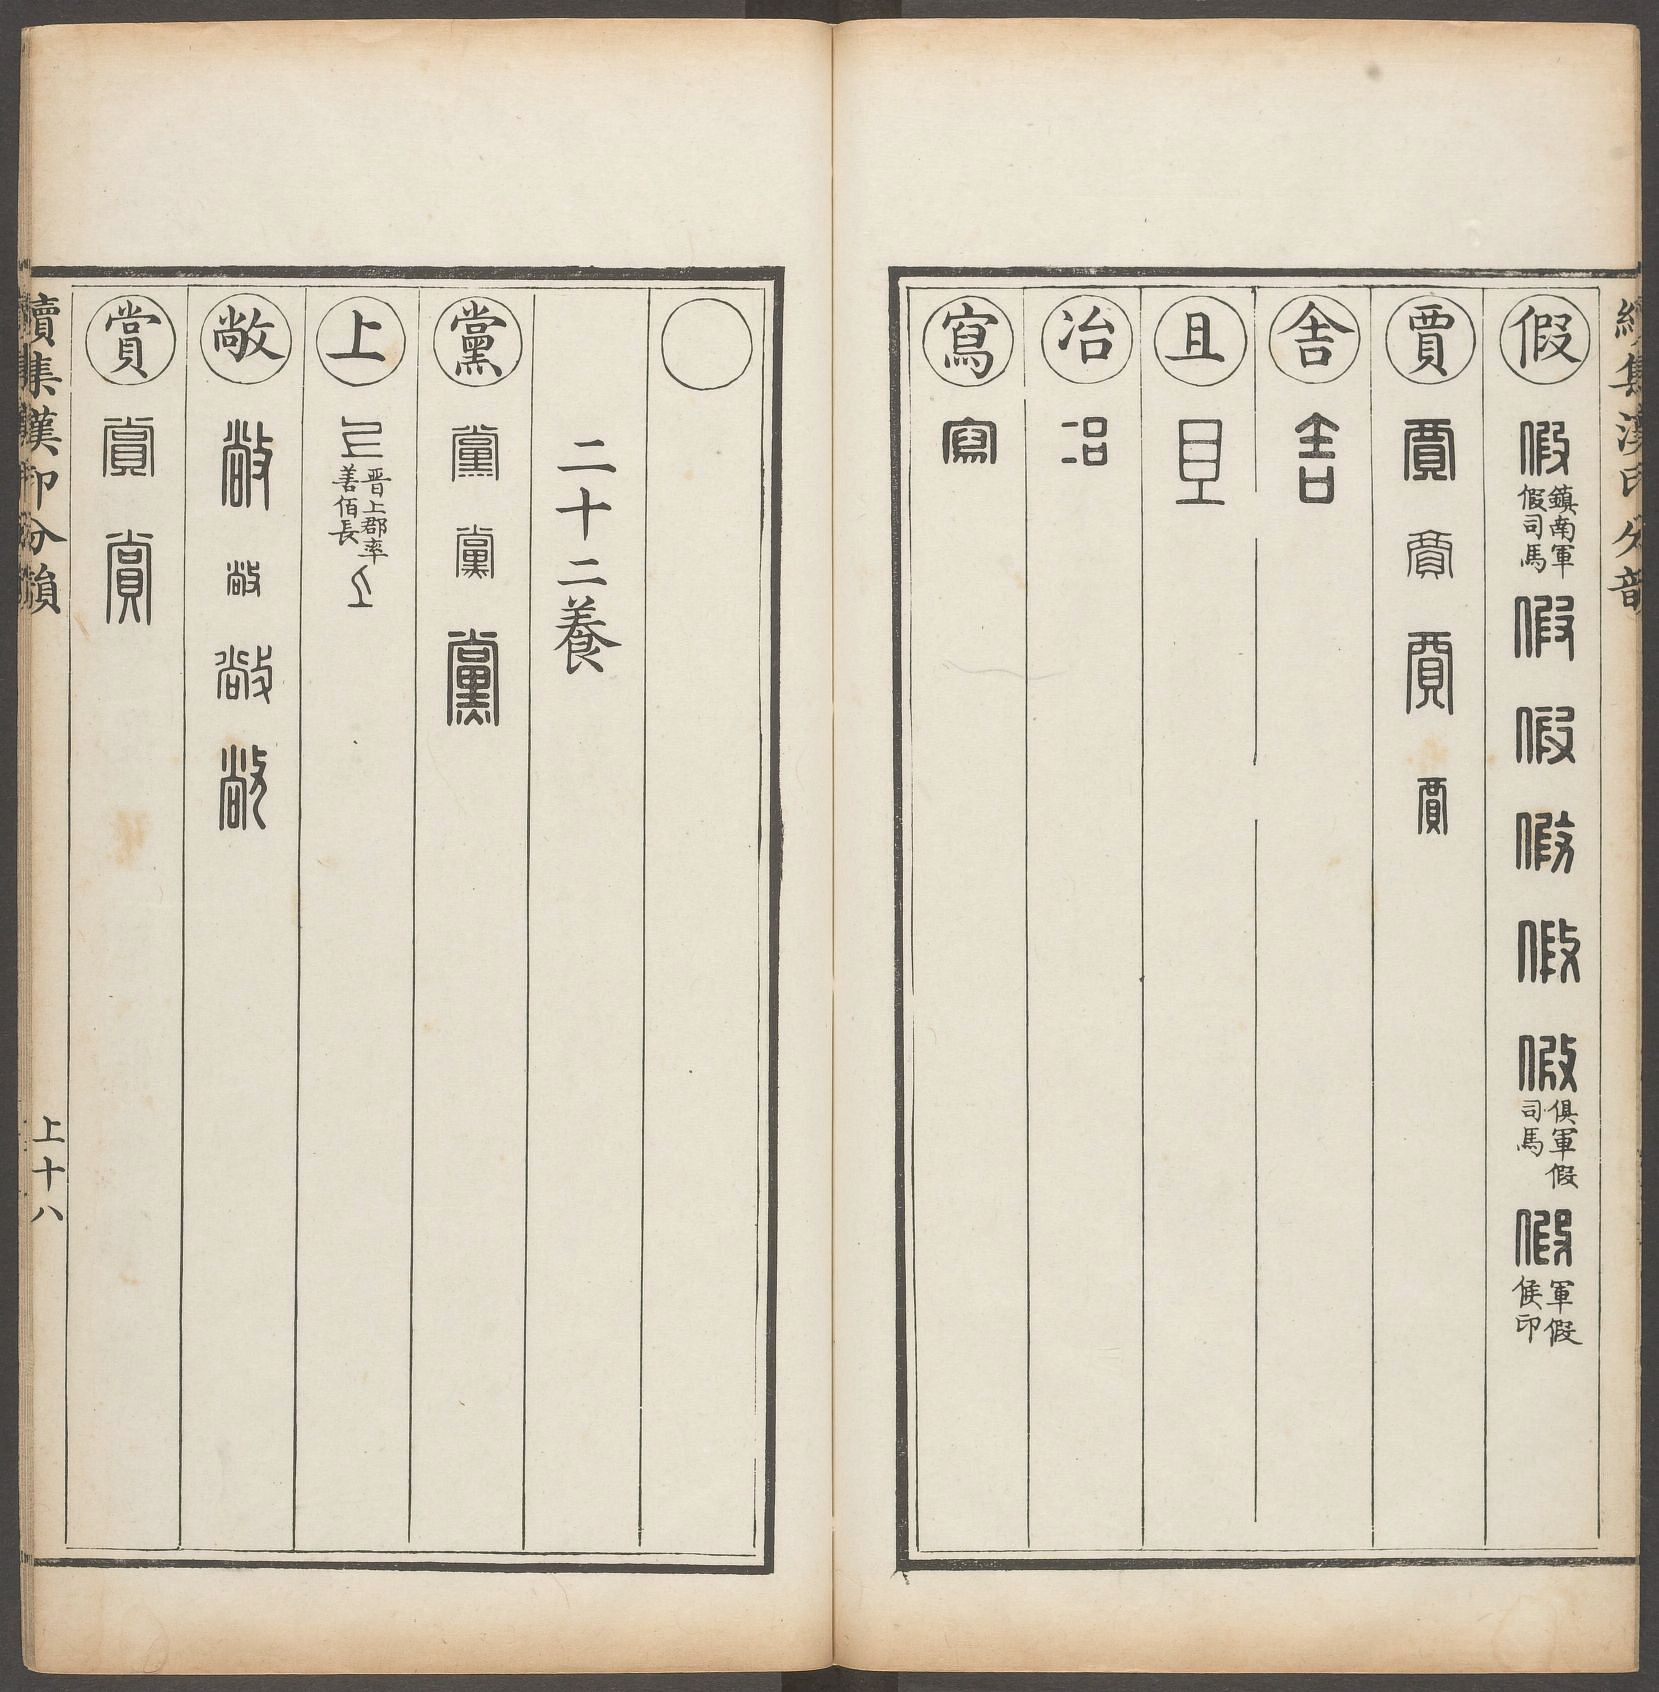 續集漢印分韻
假 假 鎮南軍假司馬 假 假 假 假 假 俱軍假司馬 假 軍假候印
賈 賈 賈 賈 賈
舍 舍
且 且
冶 冶
寫 寫
二十二養
黨 黨 黨 黨
上 上 晉上郡率善佰長 上
敞 敞 敞 敞 敞
賞 賞 賞
續集漢印分韻
上十八